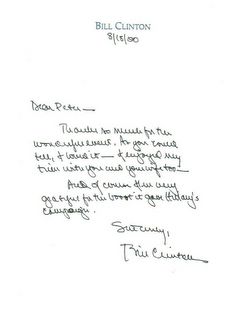 BILL CLINTON
8/15/00
Dear Peter—
Thanks so much for the
wonderful event. As you could
tell, I loved it— I enjoyed my
time with you and your wife too—
And of course I'm very
grateful for the boost it gave Hillary's
campaign.
Sincerely,
Bill Clinton